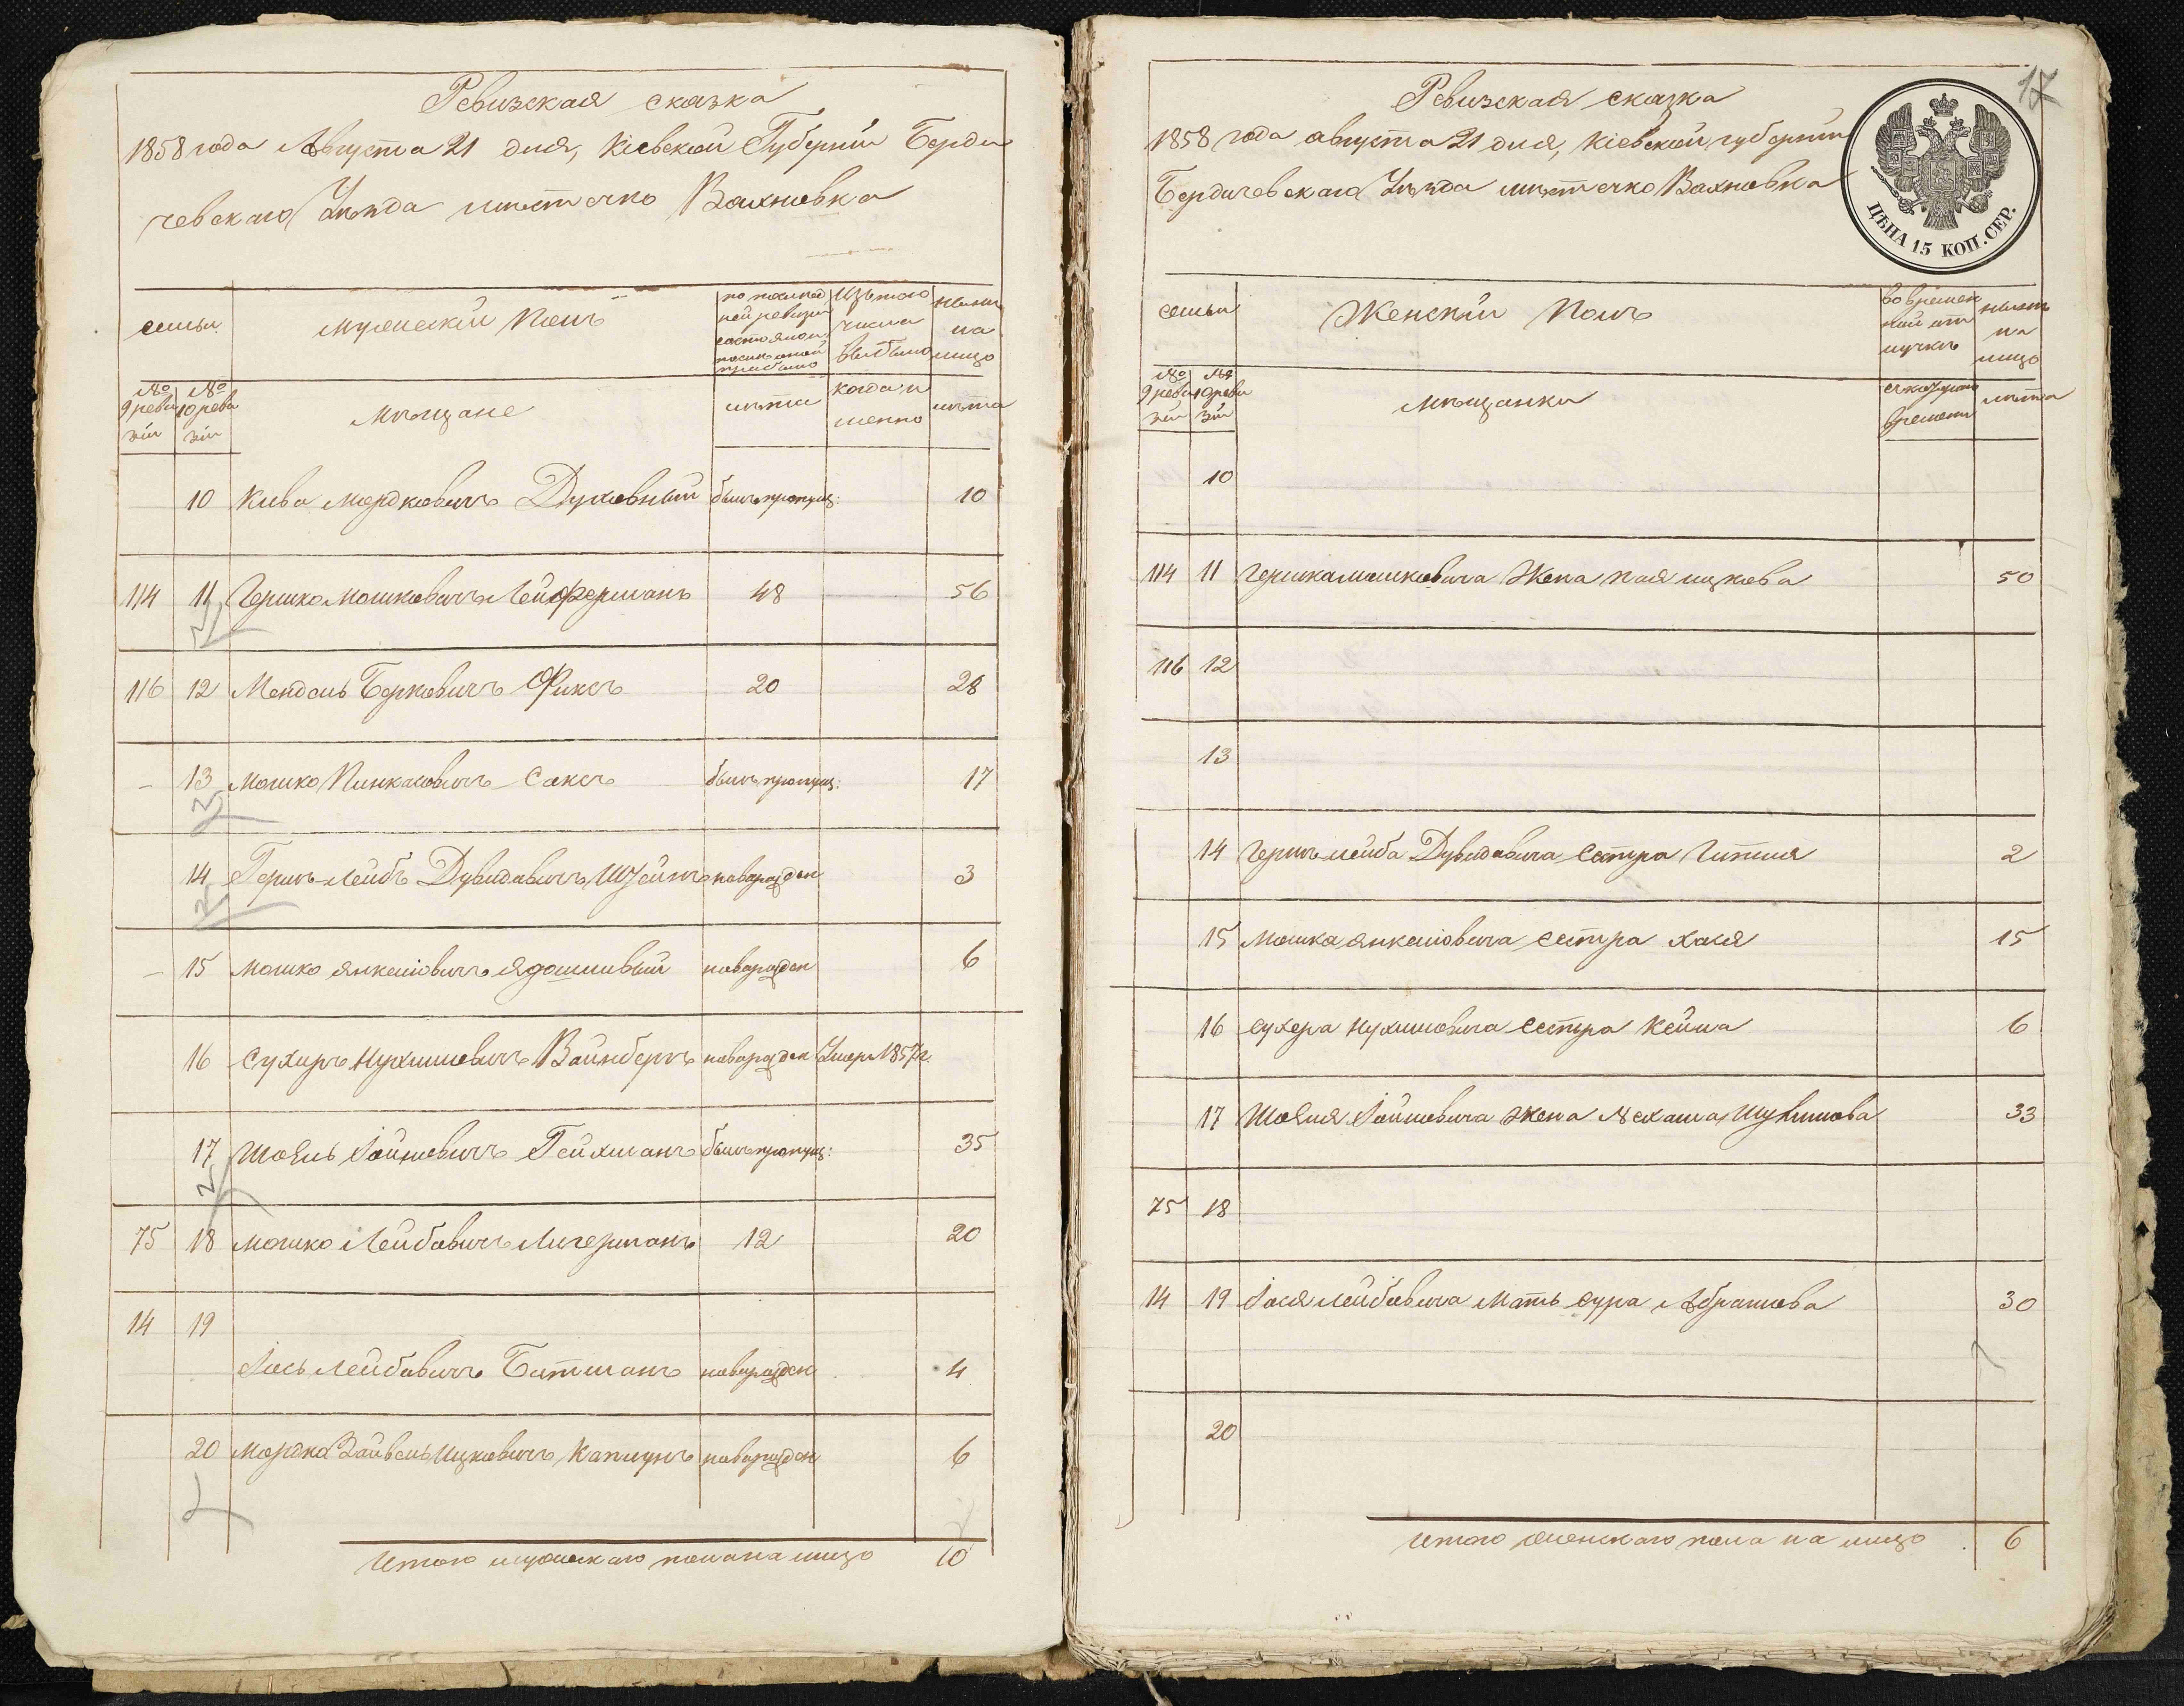 Ревизская сказка
1858 года Августа 21 дня, Кіевской Губерніи Берди
чевскаго Уѣзда мѣстечко Вахновка
семьи
Мужескій Полъ
по послѣд
ней ревизіи
состояло и
послѣ оной
прибыло
Изъ того
числа
выбыло
нынѣ
на
лицо
№ 9 ревизіи
№ 10 ревизіи
Мѣщане
лѣта
когда и
менно
лѣта
10 Кива Мордковичъ Духовный былъ пропущ: 10
114 11 Гершко Мошковичъ Лейферманъ 48 56
116 12 Мендель Берковичъ Фиксъ 20 28
13 Мошко Пинкасовичъ Саксъ былъ пропущ: 17
14 Гершъ-Лейбъ Дувидовичъ новорожден 3
15 Мошко Янкелiовичъ Ядошливый новорожден 6
16 Сухиръ Нухимовичъ Вайнберъ новорожден Умеръ 1857 г.
17 Шоэль Іойновичъ Гейхманъ былъ пропущ: 35
75 18 Мошко Лейбовичъ Личерманъ 12 20
14 19
Іось Лейбовичъ Битманъ новорожден 4
20 Мордко Зайвель Ицковичъ Капцунъ новорожден 6
Итого мужескаго пола на лицо 10
17
Ревизская сказка
1858 года августа 21 дня, Кіевской губерніи
Бердичевскаго Уѣзда мѣстечко Вахновка
ЦѢНА 15 КОП. СЕР.
семьи
Женскій Полъ
во времен
ной от
лучкѣ
нынѣ
на
лицо
№ 9 ревизіи
№ 10 ревизіи
Мѣщанки
съ котораго
времени
лѣта
10
114 11 Гершка Мошковича Жена Пая Ицкова 50
116 12
13
14 Гершъ лейба Дувидовича Сестра Гитля 2
15 Мошка Янкелiовича сестра Хася 15
16 Сухера Нухимовича Сестра Кейла 6
17 Шоэля Іойновича жена Нехама 33
75 18
14 19 Іося Лейбовича Мать Сура Абрамова 30
20
Итого женскаго пола на лицо 6